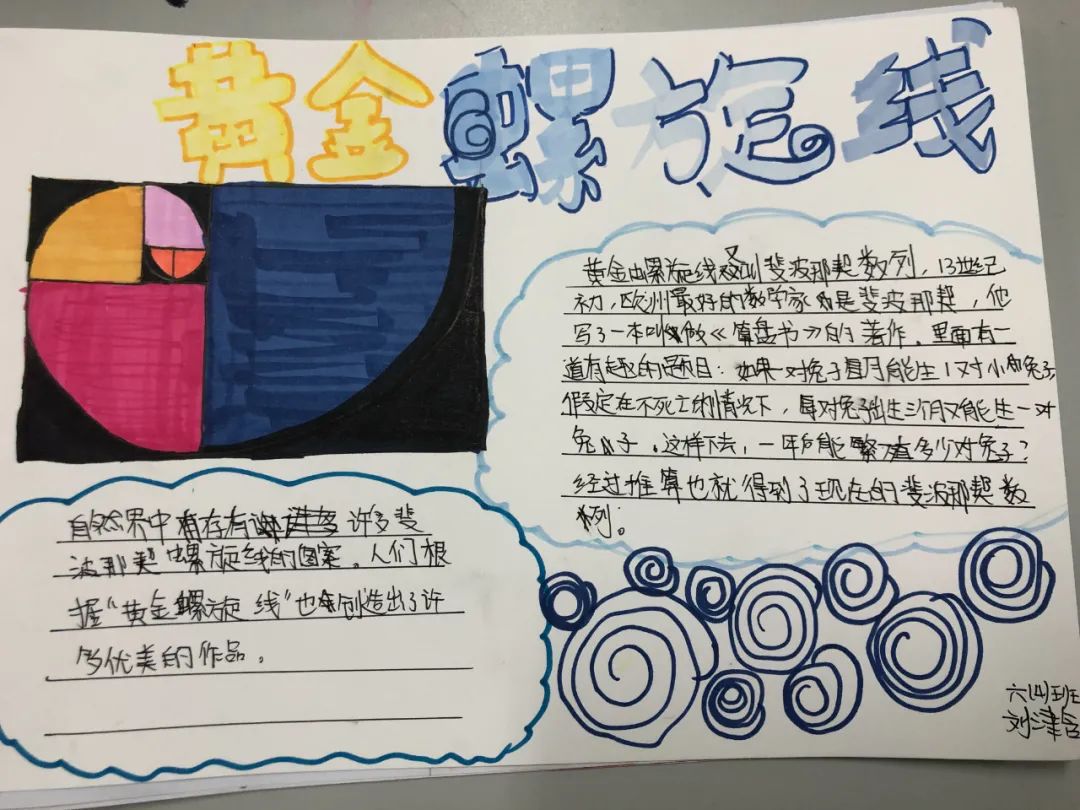 黄金螺旋线
黄金螺旋线又叫斐波那契数列，13世纪
初，欧洲最好的数学家是斐波那契，他
写了一本叫做《算盘书》的著作，里面有一
道有趣的题目：如果一对兔子每月能生1对小兔子，
假定在不死亡的情况下，每对兔子出生三个月又能生一对
兔子。这样下去，一年后能繁殖多少对兔子？
经过推算也就得到了现在的斐波那契数
列。
自然界中存有许多斐
波那契螺旋线的图案。人们根
据"黄金螺旋线"也创造出了许
多优美的作品。
六(4)班
刘津